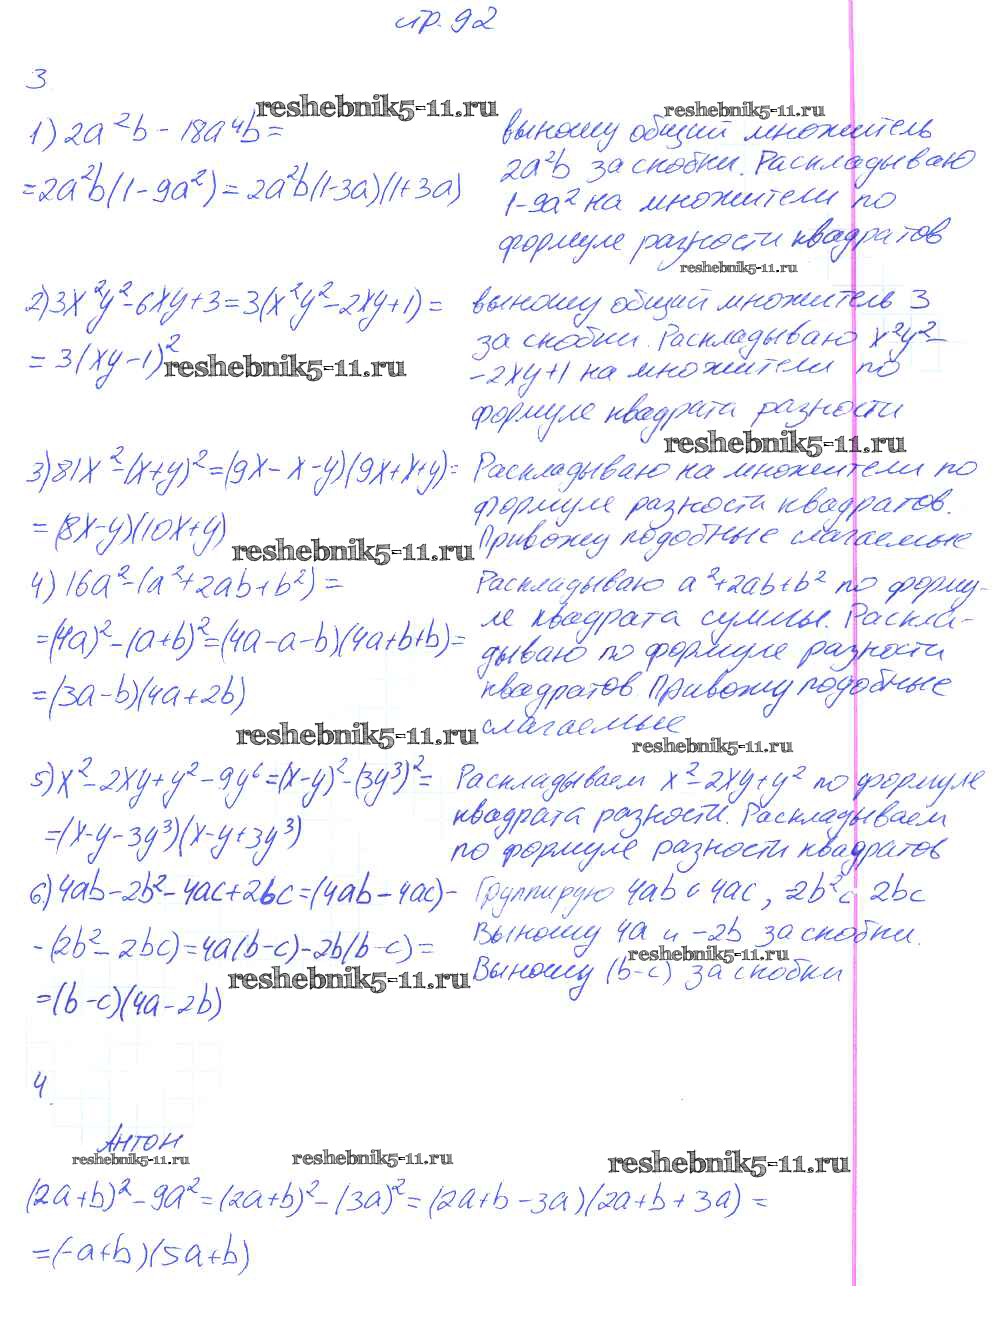 стр. 92
3
reshebnik5-11.ru
reshebnik5-11.ru
1) 2a²b - 18a⁴b =
= 2a²b(1 - 9a²) = 2a²b(1-3a)(1+3a)
выношу общий множитель
2a²b за скобки. Раскладываю
1-9a² на множители по
формуле разности квадратов
reshebnik5-11.ru
2) 3x²y² - 6xy + 3 = 3(x²y² - 2xy + 1) =
= 3(xy - 1)²
reshebnik5-11.ru
выношу общий множитель 3
за скобки. Раскладываю x²y² -
- 2xy + 1 на множители по
формуле квадрата разности
reshebnik5-11.ru
3) 81x² - (x+y)² = (9x - x - y)(9x + x + y) =
= (8x - y)(10x + y)
reshebnik5-11.ru
Раскладываю на множители по
формуле разности квадратов.
Привожу подобные слагаемые
4) 16a² - (a² + 2ab + b²) =
= (4a)² - (a+b)² = (4a - a - b)(4a + b + b) =
= (3a - b)(4a + 2b)
reshebnik5-11.ru
Раскладываю a² + 2ab + b² по форму-
ле квадрата суммы. Раскла-
дываю по формуле разности
квадратов. Привожу подобные
слагаемые
reshebnik5-11.ru
5) x² - 2xy + y² - 9y⁶ = (x - y)² - (3y³)² =
= (x - y - 3y³)(x - y + 3y³)
Раскладываем x² - 2xy + y² по формуле
квадрата разности. Раскладываем
по формуле разности квадратов
6) 4ab - 2b² - 4ac + 2bc = (4ab - 4ac) -
- (2b² - 2bc) = 4a(b - c) - 2b(b - c) =
= (b - c)(4a - 2b)
reshebnik5-11.ru
Группирую 4ab и 4ac, -2b² с 2bc
Выношу 4a и -2b за скобки.
reshebnik5-11.ru
Выношу (b-c) за скобки
4.
Антон
reshebnik5-11.ru
reshebnik5-11.ru
reshebnik5-11.ru
(2a+b)² - 9a² = (2a+b)² - (3a)² = (2a+b - 3a)(2a+b + 3a) =
= (-a+b)(5a+b)